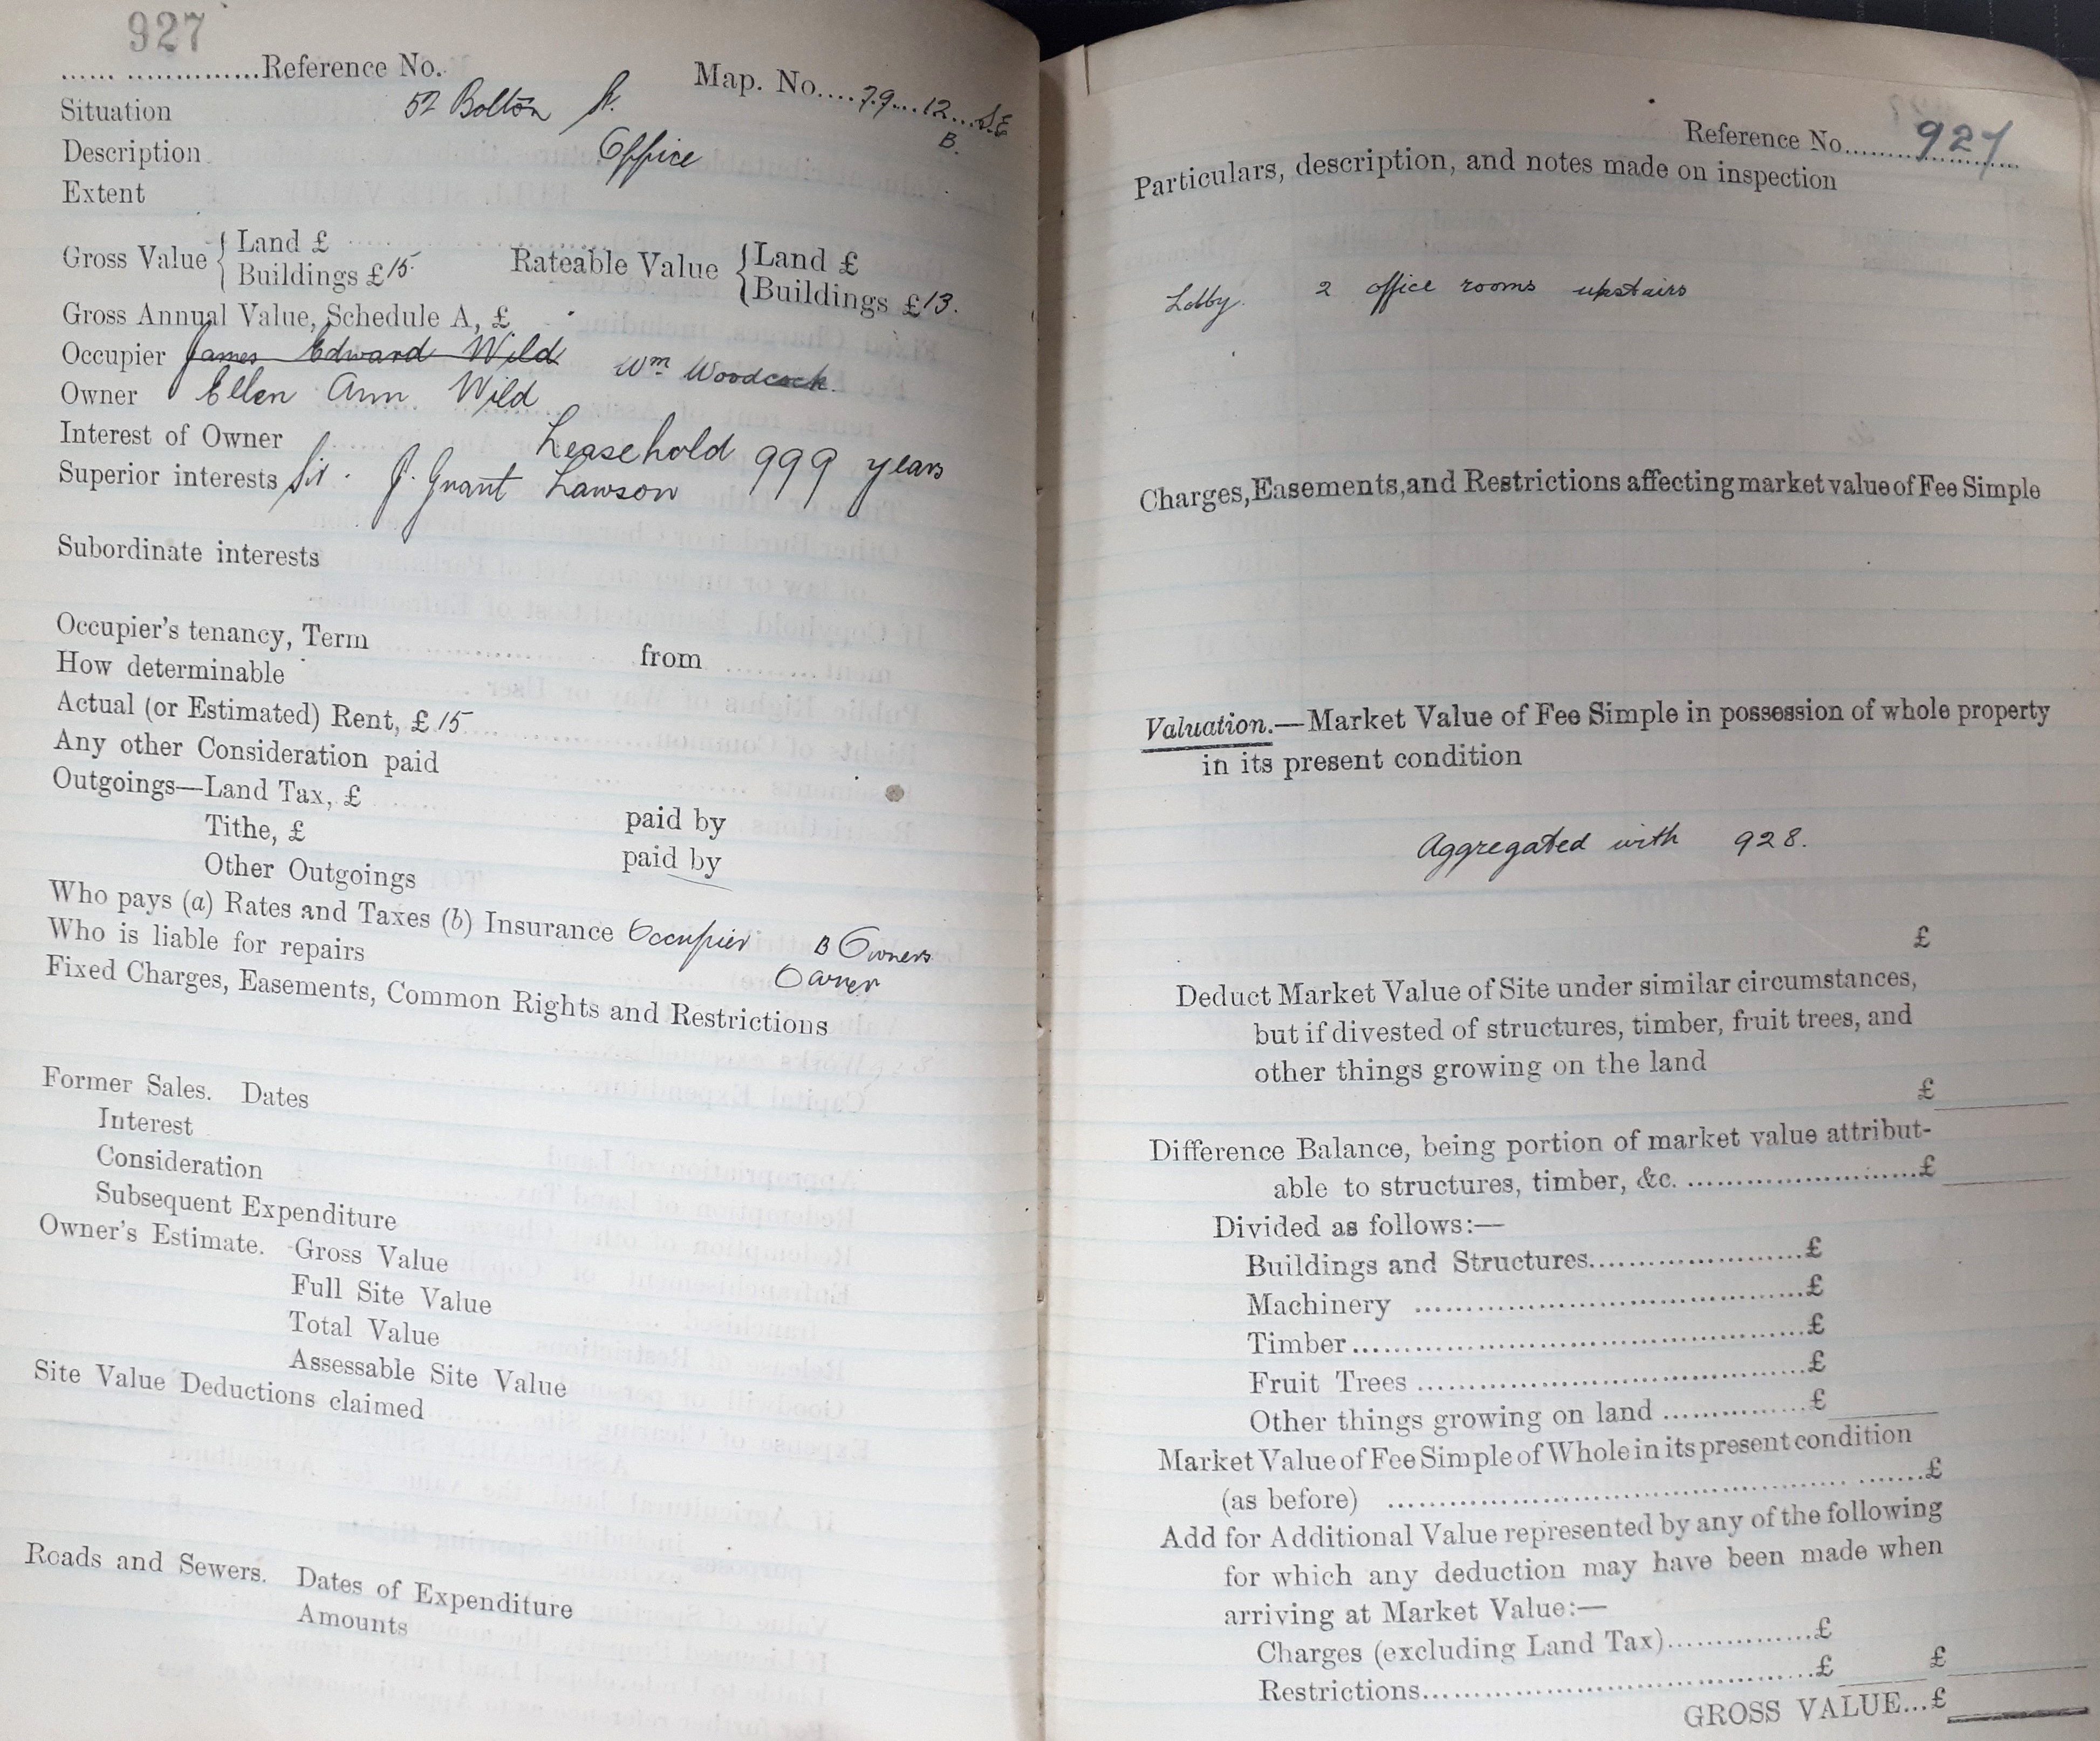 927
Reference No.
Map. No. 79 12 SE
B.
Situation 52 Bolton St.
Description Office
Extent
Gross Value { Land £
Buildings £ 15
Rateable Value { Land £
Buildings £ 13.
Gross Annual Value, Schedule A, £
Occupier James Edward Wild Wm Woodcock.
Owner Ellen Ann Wild
Interest of Owner Leasehold 999 years
Superior interests Sir. J. Grant Lawson
Subordinate interests
Occupier's tenancy, Term from
How determinable
Actual (or Estimated) Rent, £ 15
Any other Consideration paid
Outgoings—Land Tax, £ paid by
Tithe, £ paid by
Other Outgoings
Who pays (a) Rates and Taxes (b) Insurance Occupier B Owners
Who is liable for repairs Owner
Fixed Charges, Easements, Common Rights and Restrictions
Former Sales. Dates
Interest
Consideration
Subsequent Expenditure
Owner's Estimate. Gross Value
Full Site Value
Total Value
Assessable Site Value
Site Value Deductions claimed
Roads and Sewers. Dates of Expenditure
Amounts
Reference No. 927
Particulars, description, and notes made on inspection
Lobby. 2 office rooms upstairs
Charges, Easements, and Restrictions affecting market value of Fee Simple
Valuation.—Market Value of Fee Simple in possession of whole property
in its present condition
Aggregated with 928.
£
Deduct Market Value of Site under similar circumstances,
but if divested of structures, timber, fruit trees, and
other things growing on the land
£
Difference Balance, being portion of market value attribut-
able to structures, timber, &c. £
Divided as follows:—
Buildings and Structures £
Machinery £
Timber £
Fruit Trees £
Other things growing on land £
Market Value of Fee Simple of Whole in its present condition
(as before) £
Add for Additional Value represented by any of the following
for which any deduction may have been made when
arriving at Market Value:—
Charges (excluding Land Tax) £
Restrictions £ £
GROSS VALUE... £